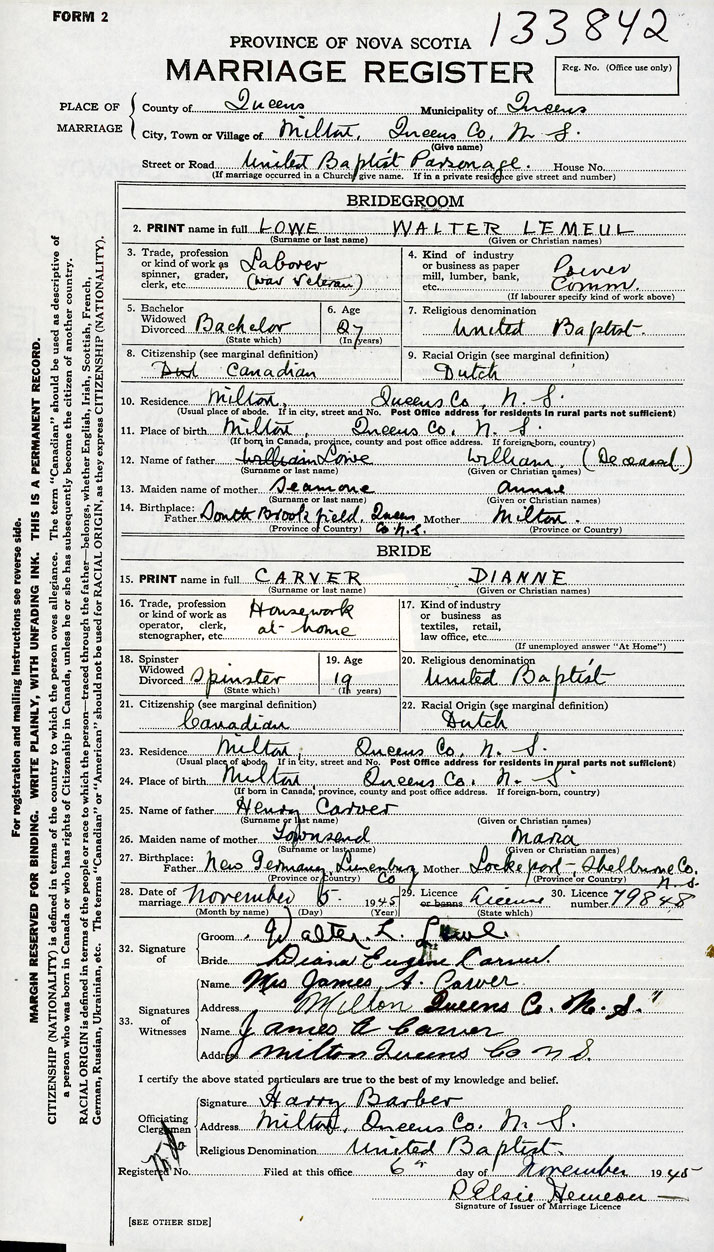 FORM 2
133842
PROVINCE OF NOVA SCOTIA
MARRIAGE REGISTER
Reg. No. (Office use only)
PLACE OF MARRIAGE
County of Queens Municipality of Queens
City, Town or Village of Milton, Queens Co, N. S.
(Give name)
Street or Road United Baptist Parsonage. House No.
(If marriage occurred in a Church give name. If in a private residence give street and number)
BRIDEGROOM
2. PRINT name in full LOWE WALTER LEMEUL
(Surname or last name) (Given or Christian names)
3. Trade, profession or kind of work as spinner, grader, clerk, etc. Laborer (war veteran)
4. Kind of industry or business as paper mill, lumber, bank, etc. Power Comm.
(If labourer specify kind of work above)
5. Bachelor Widowed Divorced Bachelor
(State which)
6. Age 27
(In years)
7. Religious denomination
United Baptist
8. Citizenship (see marginal definition)
Canadian
9. Racial Origin (see marginal definition)
Dutch
10. Residence Milton, Queens Co, N. S.
(Usual place of abode. If in city, street and No. Post Office address for residents in rural parts not sufficient)
11. Place of birth Milton, Queens Co, N. S.
(If born in Canada, province, county and post office address. If foreign-born, country)
12. Name of father William Lowe William, (Deceased)
(Surname or last name) (Given or Christian names)
13. Maiden name of mother Seamone Annie
(Surname or last name) (Given or Christian names)
14. Birthplace: Father South Brookfield, Queens Co. N.S. Mother Milton.
(Province or Country) (Province or Country)
BRIDE
15. PRINT name in full CARVER DIANNE
(Surname or last name) (Given or Christian names)
16. Trade, profession or kind of work as operator, clerk, stenographer, etc. Housework at home
17. Kind of industry or business as textiles, retail, law office, etc.
(If unemployed answer "At Home")
18. Spinster Widowed Divorced Spinster
(State which)
19. Age 19
(In years)
20. Religious denomination
United Baptist
21. Citizenship (see marginal definition)
Canadian
22. Racial Origin (see marginal definition)
Dutch
23. Residence Milton, Queens Co, N. S.
(Usual place of abode. If in city, street and No. Post Office address for residents in rural parts not sufficient)
24. Place of birth Milton Queens Co, N. S.
(If born in Canada, province, county and post office address. If foreign-born, country)
25. Name of father Henry Carver
(Surname or last name) (Given or Christian names)
26. Maiden name of mother Townsend Maria
(Surname or last name) (Given or Christian names)
27. Birthplace: Father New Germany, Lunenburg Co Mother Lockeport, Shelburne Co. N.S.
(Province or Country) (Province or Country)
28. Date of marriage November 5. 1945
(Month by name) (Day) (Year)
29. Licence or banns License
(State which)
30. Licence number 79848
32. Signature of
Groom Walter. L. Lowe.
Bride Diana Eugene Carver.
33. Signatures of Witnesses
Name Mrs James A. Carver
Address Milton Queens Co. N. S.
Name James A Carver
Address Milton Queens Co N S.
I certify the above stated particulars are true to the best of my knowledge and belief.
Officiating Clergyman
Signature Harry Barber
Address Milton, Queens Co, N. S.
Religious Denomination United Baptist.
Registered No. Filed at this office 6 day of November 1945
Elsie Hemeon
Signature of Issuer of Marriage Licence
[SEE OTHER SIDE]
For registration and mailing instructions see reverse side.
MARGIN RESERVED FOR BINDING. WRITE PLAINLY, WITH UNFADING INK. THIS IS A PERMANENT RECORD.
CITIZENSHIP (NATIONALITY) is defined in terms of the country to which the person owes allegiance. The term "Canadian" should be used as descriptive of
a person who was born in Canada or who has rights of Citizenship in Canada, unless he or she has subsequently become the citizen of another country.
RACIAL ORIGIN is defined in terms of the people or race to which the person—traced through the father—belongs, whether English, Irish, Scottish, French,
German, Russian, Ukrainian, etc. The terms "Canadian" or "American" should not be used for RACIAL ORIGIN, as they express CITIZENSHIP (NATIONALITY).